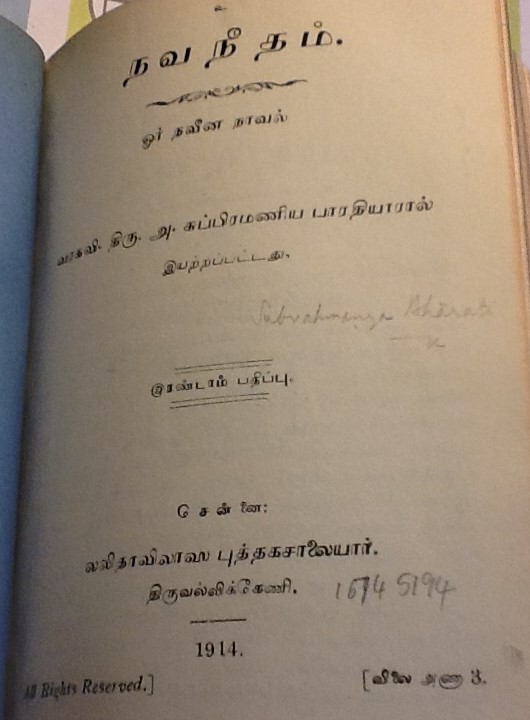 உ
நவநீதம்.
ஓர் நவீன நாவல்
வரகவி. திரு. அ. சுப்பிரமணிய பாரதியாரால்
இயற்றப்பட்டது.
Subrahmanya Bharati
இரண்டாம் பதிப்பு.
சென்னை:
லலிதாவிலாஸ புத்தகசாலையார்.
திருவல்லிக்கேணி.
1674 5194
1914.
All Rights Reserved.] [விலை அணா 3.